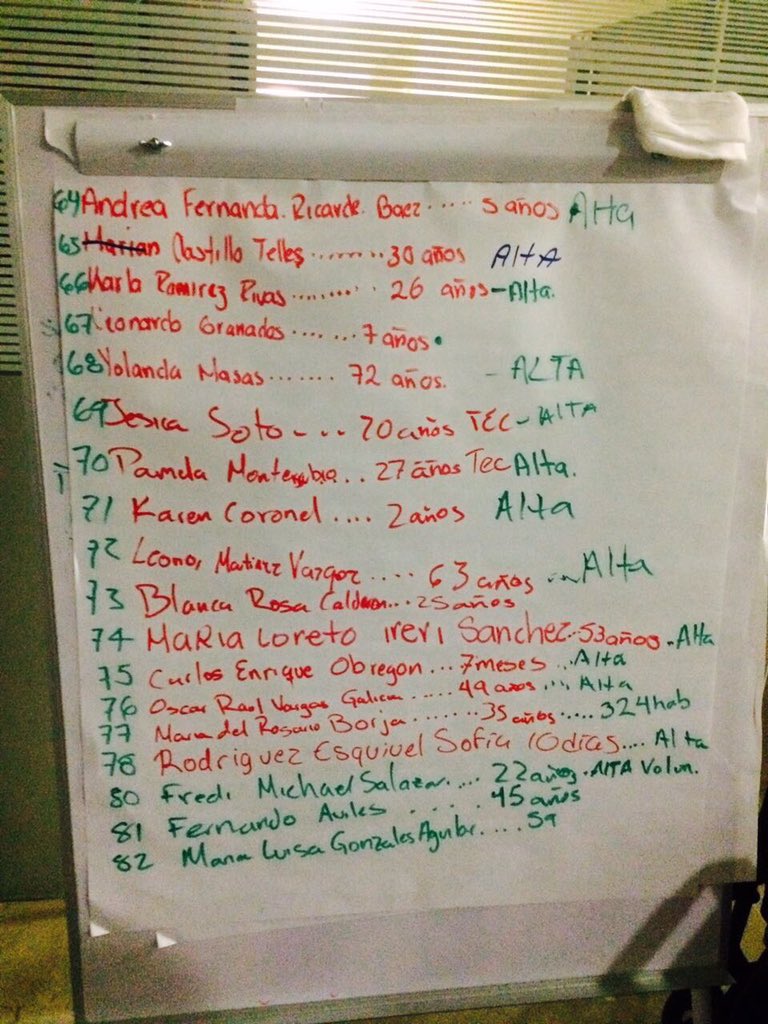 64 Andrea Fernanda. Ricarde. Baez ..... 5 años Alta
65 Marian Castillo Telles ........ 30 años AltA
66 Karla Ramirez Rivas ......... 26 años - Alta.
67 Leonardo Granados ....... 7 años.
68 Yolanda Masas ....... 72 años. - ALTA
69 Jesica Soto - ... 20 años TEC - AltA
70 Pamela .. 27 años Tec Alta.
71 Karen Coronel .... 2 años Alta
72 Leonor Martinez .... 63 años ... Alta
73 Blanca Rosa Calderon... 25 años
74 MaRia Loreto ireri Sanchez. 53 años. Alta
75 Carlos Enrique Obregon ... 7 meses ... Alta
76 Oscar Raul Vargas Galicia ...... 49 años ... Alta
77 Maria del Rosario Borja ....... 35 años ..... 324 hab
78 Rodriguez Esquivel Sofia 10 dias.... Alta
80 Fredi Michael Salazar .... 22 años. AltA Volun.
81 Fernando Aviles ..... 45 años
82 Maria Luisa Gonzales Aguilar ..... 59